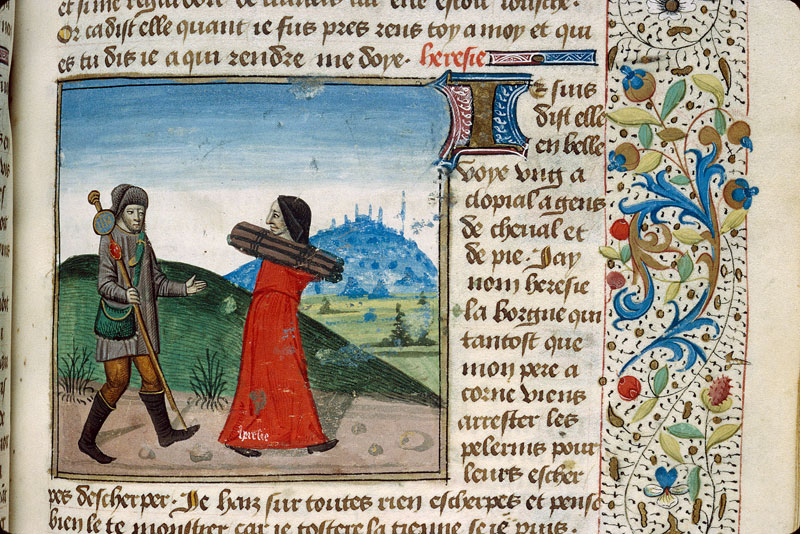 Or ca dist elle quant ie fus pres rens toy a moy et qui
es tu dis ie a qui rendre me doye. heresie
Je suis
dist elle
en belle
voye ung a
clopial a gens
de cheual et
de pie. Jay
nom heresie
la borgne qui
tantost que
mon pere a
corne viens
arrester les
pelerins pour
leurs escher
pes descherper. Je haiz sur toutes rien escherpes et pense
bien le te monstrer car ie tosteré la tienne se ie puis.
heresie